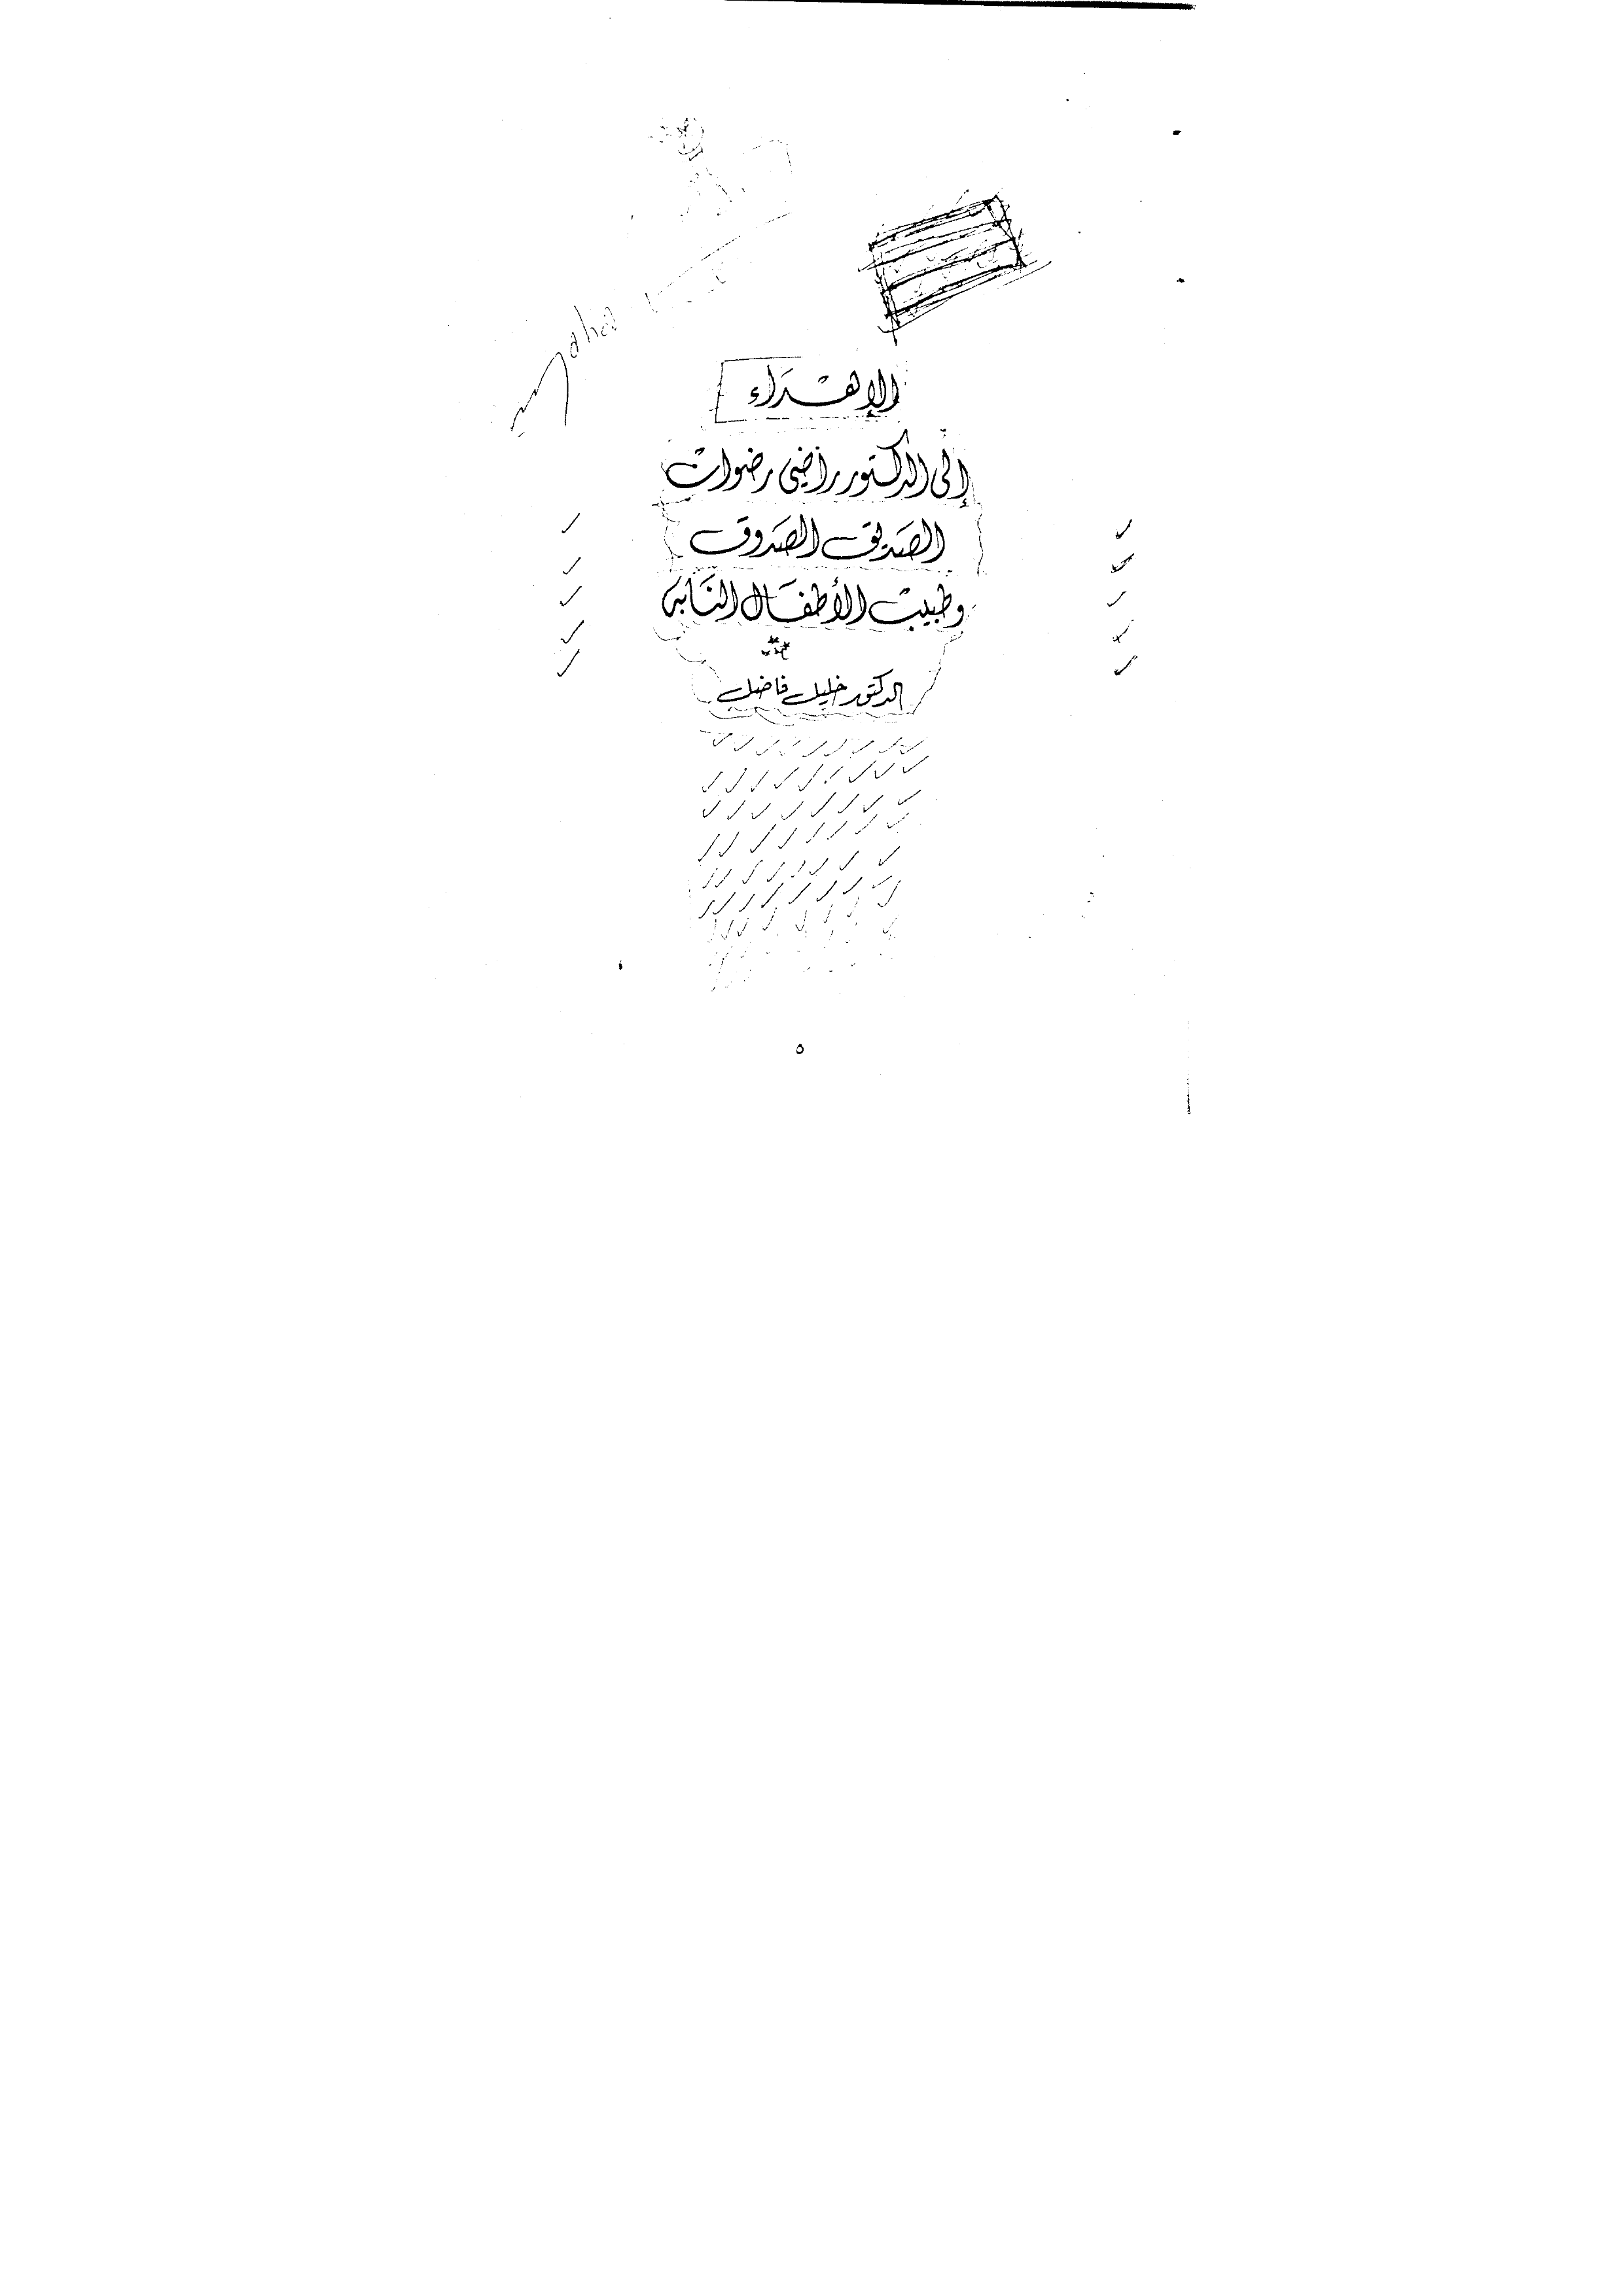 الإهداء
إلى الدكتور راضي رضوان
الصديق الصدوق
وطبيب الأطفال النابه
الدكتور خليل فاضل
٥